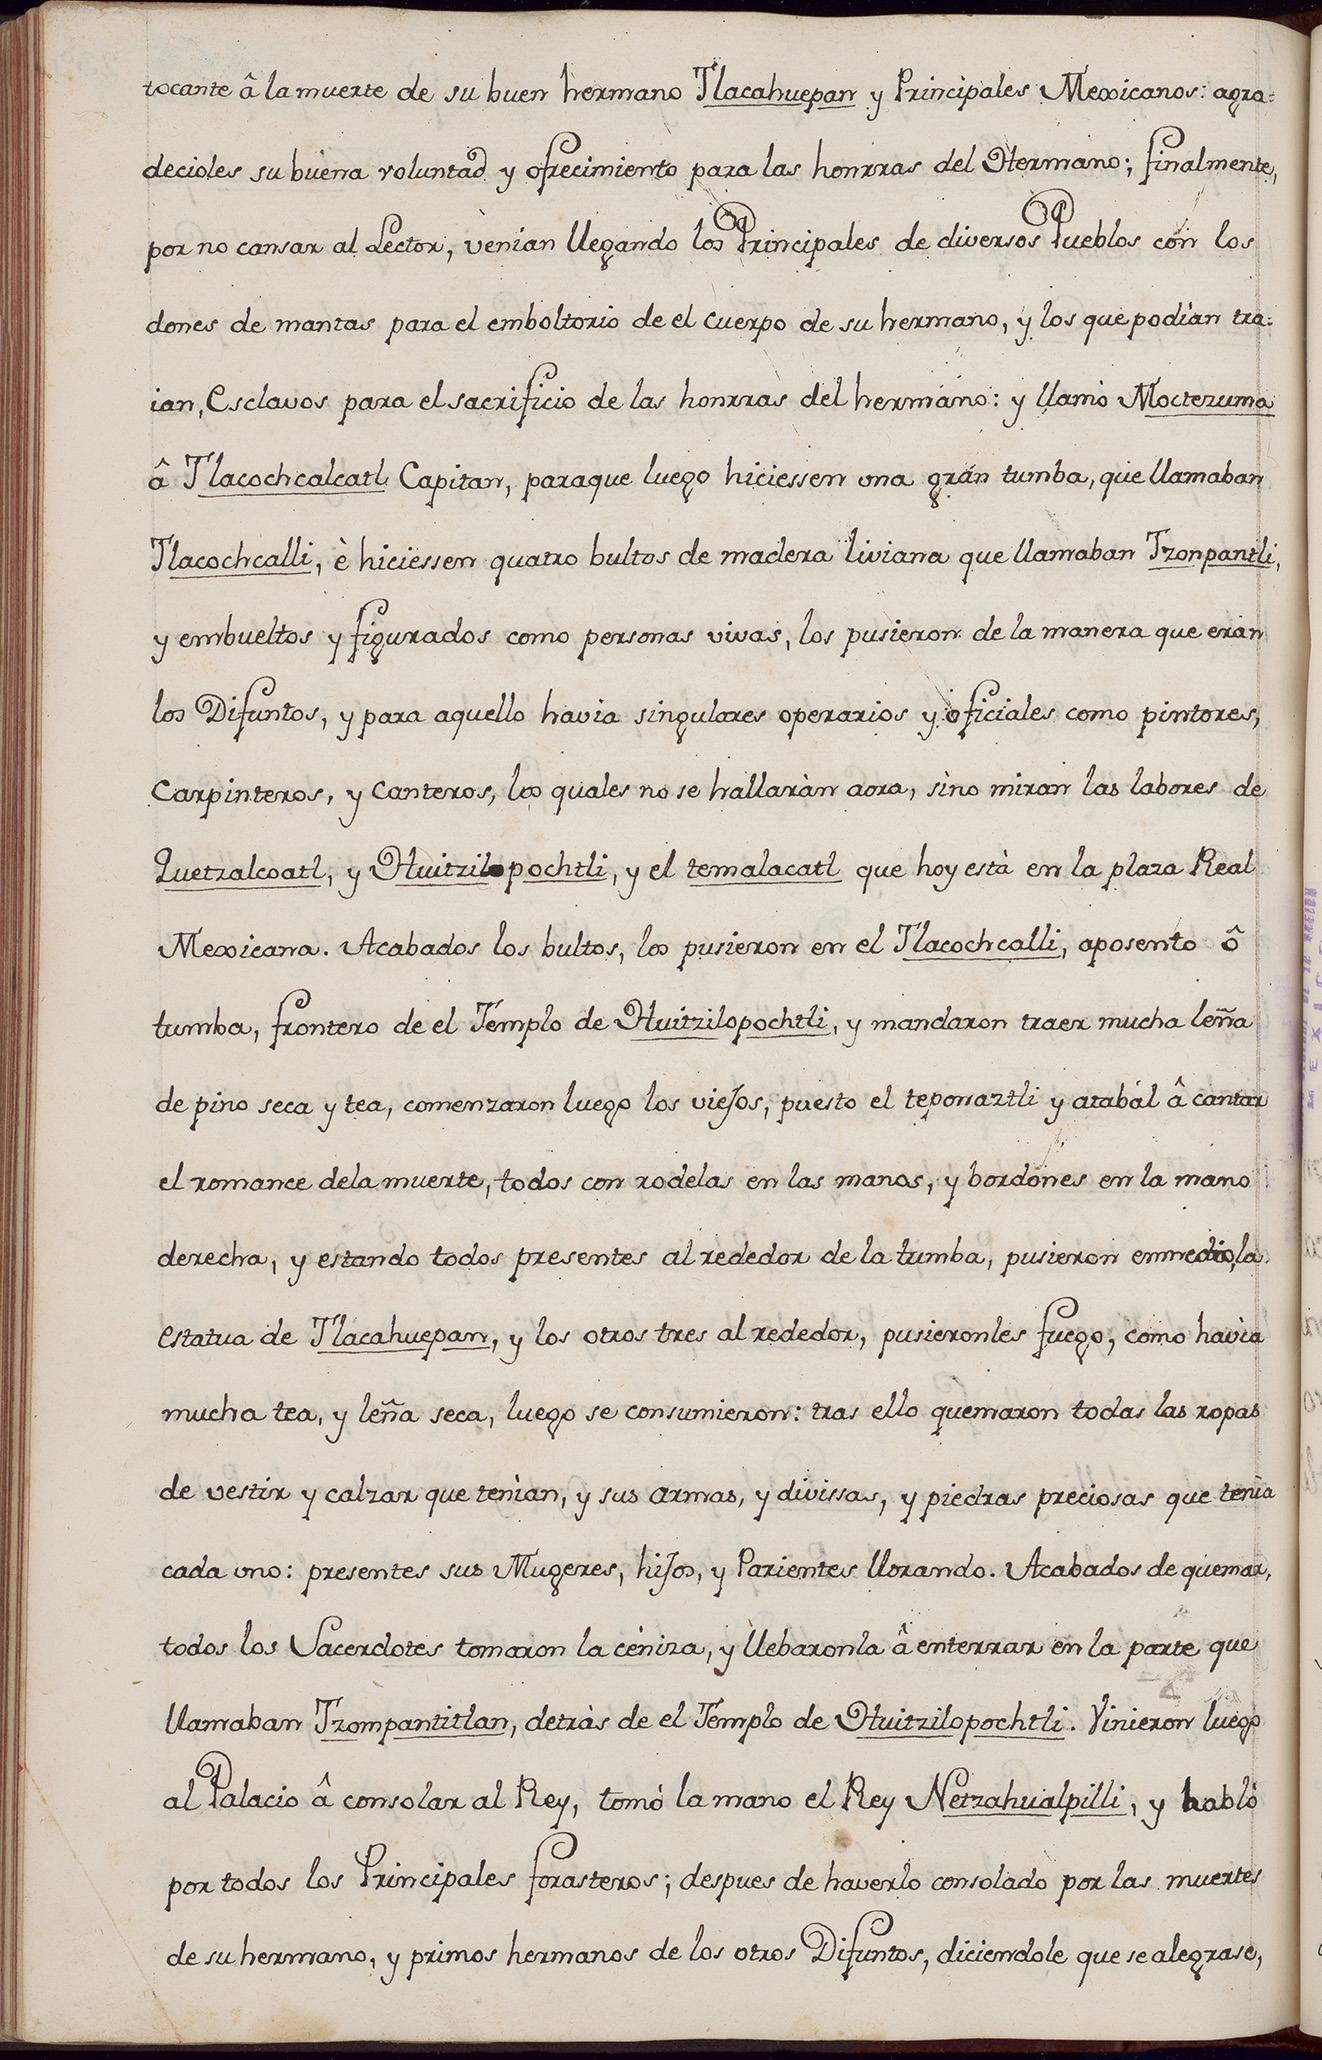 tocante â la muerte de su buen hermano Tlacahuepan y Principales Mexicanos: agra=
decioles su buena voluntad y ofrecimiento para las honrras del Hermano; finalmente,
por no cansar al Lector, venian llegando los Principales de diversos Pueblos con los
dones de mantas para el emboltorio de el cuerpo de su hermano, y los que podian tra=
ian, Esclavos para el sacrificio de las honrras del hermano: y llamò Moctezuma
â Tlacochcalcatl Capitan, paraque luego hiciessen una gran tumba, que llamaban
Tlacochcalli, è hiciessen quatro bultos de madera liviana que llamaban Tzonpantli,
y embueltos y figurados como personas vivas, los pusieron de la manera que eran
los Difuntos, y para aquello havia singulares operarios y oficiales como pintores,
Carpinteros, y Canteros, los quales no se hallaràn aora, sino miran las labores de
Quetzalcoatl, y Huitzilopochtli, y el temalacatl que hoy està en la plaza Real
Mexicana. Acabados los bultos, los pusieron en el Tlacochcalli, aposento ô
tumba, frontero de el Templo de Huitzilopochtli, y mandaron traer mucha leña
de pino seca y tea, comenzaron luego los viejos, puesto el teponaztli y atabál â cantar
el romance dela muerte, todos con rodelas en las manos, y bordones en la mano
derecha, y estando todos presentes al rededor de la tumba, pusieron enmedio, la
estatua de Tlacahuepan, y los otros tres al rededor, pusieronles fuego, como havia
mucha tea, y leña seca, luego se consumieron: tras ello quemaron todas las ropas
de vestir y calzar que tenian, y sus armas, y divissas, y piedras preciosas que tenia
cada uno: presentes sus Mugeres, hijos, y Parientes llorando. Acabados de quemar,
todos los Sacerdotes tomaron la ceniza, y llebaronla â enterrar en la parte que
llamaban Tzompantitlan, detràs de el Templo de Huitzilopochtli. Vinieron luego
al Palacio â consolar al Rey, tomò la mano el Rey Netzahualpilli, y hablò
por todos los Principales forasteros; despues de haverlo consolado por las muertes
de su hermano, y primos hermanos de los otros Difuntos, diciendole que se alegrase,